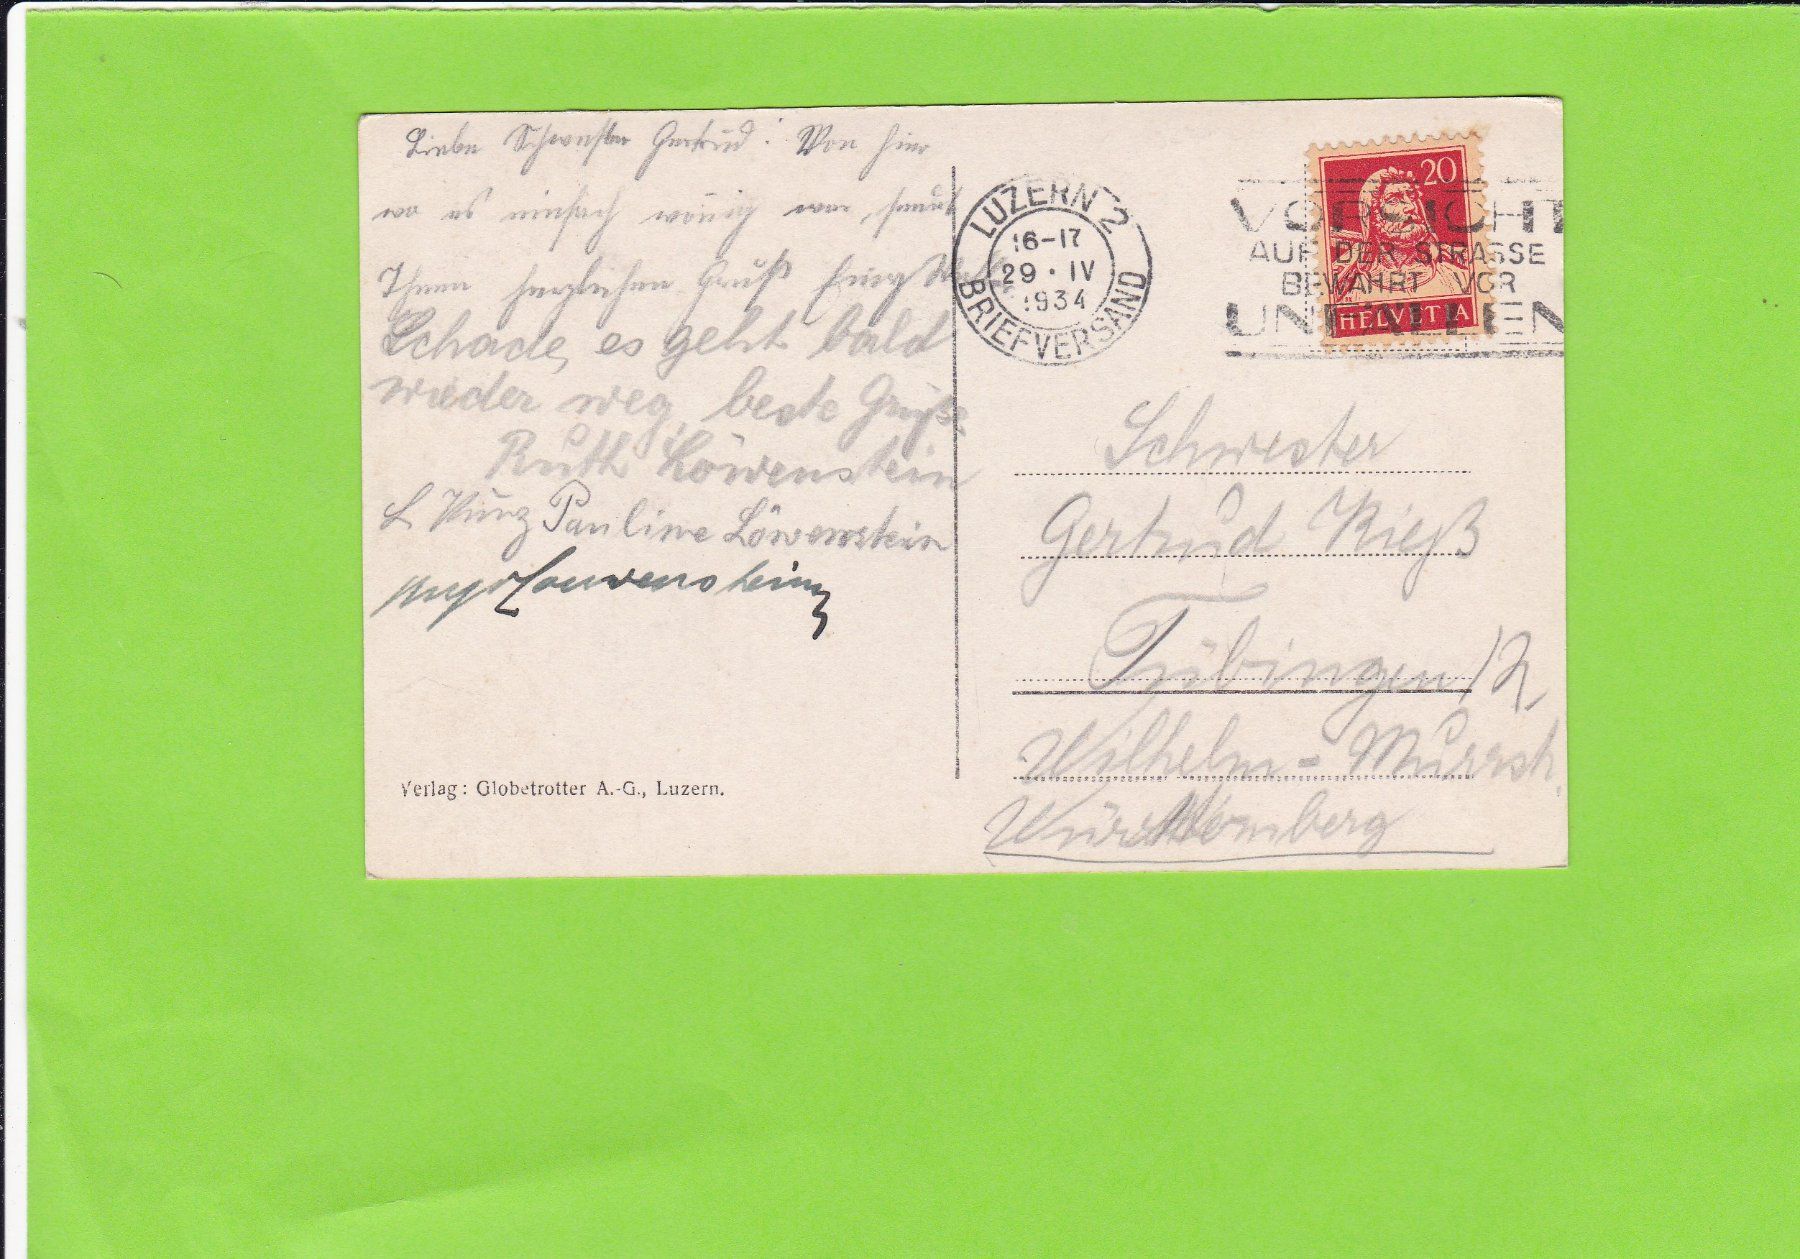 Liebe Schwester Gertrud! Von hier
wo es einfach wonnig war, sendet
Ihnen herzlichen Gruß
Schade, es geht bald
wieder weg, beste Grüße
Ruth Löwenstein
L. Kunz Pauline Löwenstein
Hugo Loewenstein
Verlag: Globetrotter A.-G., Luzern.
LUZERN 2
16-17
29·IV
1934
BRIEFVERSAND
VORSICHT
AUF DER STRASSE
BEWAHRT VOR
UNFÄLLEN
20
HELVETIA
Schwester
Gertrud Rieß
Tübingen/N.
Wilhelm-Murrstr.
Württemberg